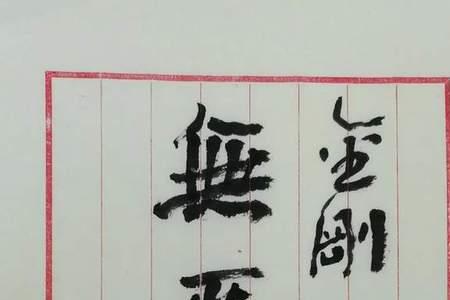 金剛
無